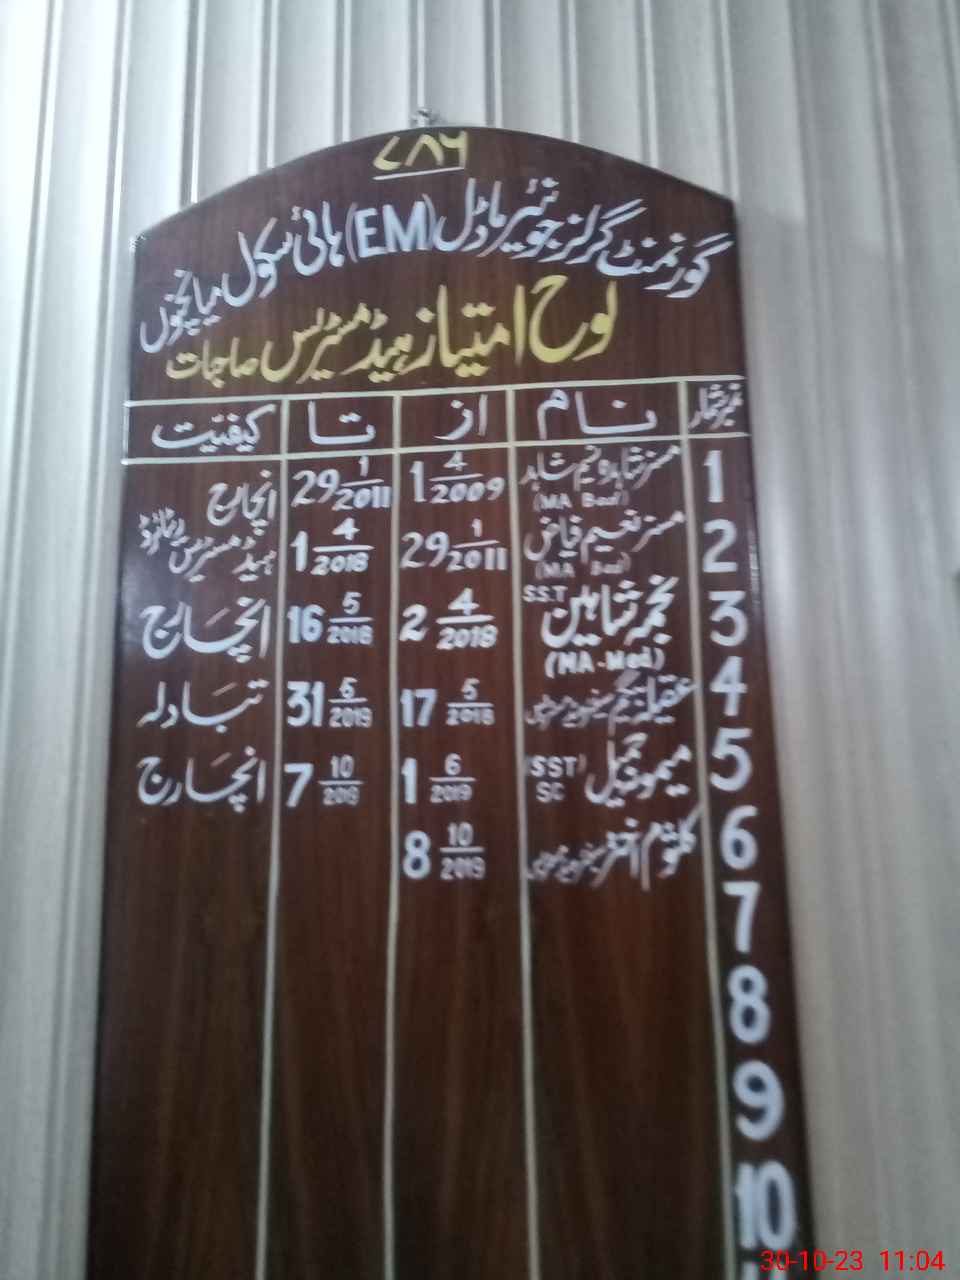 ۷۸۶
گورنمنٹ گرلز جونیئر ماڈل (EM) ہائی سکول میانچنوں
لوح امتیاز ہیڈ مسٹریس صاحبات
نمبر شمار نام از تا کیفیّت
1 مسز شاہدہ نسیم شاہد (MA Bed) 1 4/2009 29 1/2011 انچارج
2 مسز نعیم فیاض (MA Bed) 29 1/2011 1 4/2018 ہیڈ مسٹریس ریٹائرڈ
3 نجمہ شاہین S.S.T (MA-Med) 2 4/2018 16 5/2018 انچارج
4 عقیلہ بیگم 17 5/2018 31 5/2019 تبادلہ
5 میمونہ جمیل (SST) SC 1 6/2019 7 10/2019 انچارج
6 کلثوم اختر 8 10/2019
7
8
9
10
30-10-23 11:04